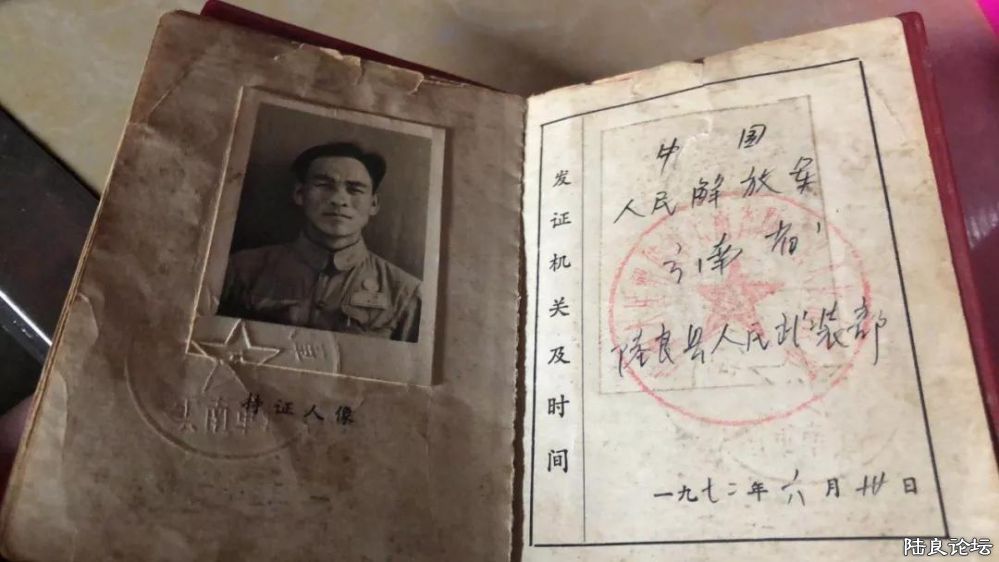 持证人像
发证机关及时间
中国
人民解放军
云南省
陆良县人民武装部
一九七二年六月卅日
陆良论坛